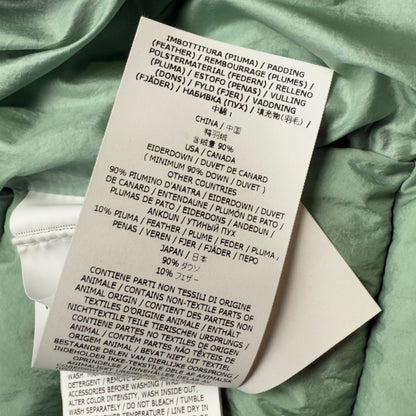 IMBOTTITURA (PIUMA) / PADDING
(FEATHER) / REMBOURRAGE (PLUMES) /
POLSTERMATERIAL (FEDERN) / RELLENO
(PLUMA) / ESTOFO (PENAS) / VULLING
(DONS) / FYLD (FJER) / VADDNING
(FJÄDER) / НАБИВКА (ПУХ) / 填充物(羽毛) /
中綿 :
CHINA / 中国
鸭羽绒
含绒量 90%
USA / CANADA
EIDERDOWN / DUVET DE CANARD
( MINIMUM 90% DOWN / DUVET )
OTHER COUNTRIES
90% PIUMINO D'ANATRA / EIDERDOWN / DUVET
DE CANARD / ENTENDAUNE / PLUMÓN DE PATO /
PLUMAS DE PATO / EIDERDONS / ANDEDUN /
ANKDUN / УТИНЫЙ ПУХ
10% PIUMA / FEATHER / PLUME / FEDER / PLUMA /
PENAS / VEREN / FJER / FJÄDER / ПЕРО
JAPAN / 日本
90% ダウン
10% フェザー
CONTIENE PARTI NON TESSILI DI ORIGINE
ANIMALE / CONTAINS NON-TEXTILE PARTS OF
ANIMAL ORIGIN / CONTIENT DES PARTIES NON
TEXTILES D'ORIGINE ANIMALE / ENTHÄLT
NICHTTEXTILE TEILE TIERISCHEN URSPRUNGS /
CONTIENE PARTES NO TEXTILES DE ORIGEN
ANIMAL / CONTÉM PARTES NÃO TÊXTEIS DE
ORIGEM ANIMAL / BEVAT NIET UIT TEXTIEL
BESTAANDE DELEN VAN DIERLIJKE OORSPRONG /
INDEHOLDER IKKE TEKSTILE DELE AF
WASH
DETERGENT / REMOVE
BEFORE WASHING / WASH
ALTER COLOR INTENSITY, WASH INSIDE OUT.
WASH SEPARATELY / DO NOT BLEACH / TUMBLE
TEMPERATURE / LINE DRY IN